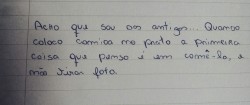 Acho que sou das antigas... Quando
coloco comida no prato a primeira
coisa que penso é em comê-la, e
não tirar foto.